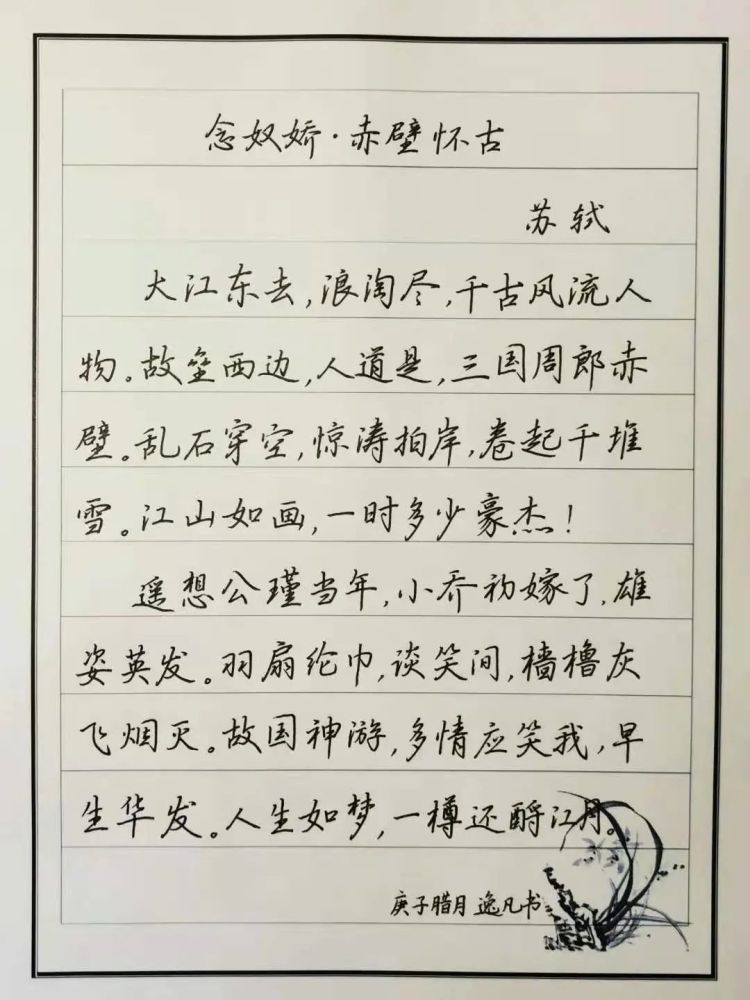 念奴娇·赤壁怀古
苏轼
大江东去,浪淘尽,千古风流人
物。故垒西边,人道是,三国周郎赤
壁。乱石穿空,惊涛拍岸,卷起千堆
雪。江山如画,一时多少豪杰!
遥想公瑾当年,小乔初嫁了,雄
姿英发。羽扇纶巾,谈笑间,樯橹灰
飞烟灭。故国神游,多情应笑我,早
生华发。人生如梦,一樽还酹江月。
庚子腊月 逸凡书